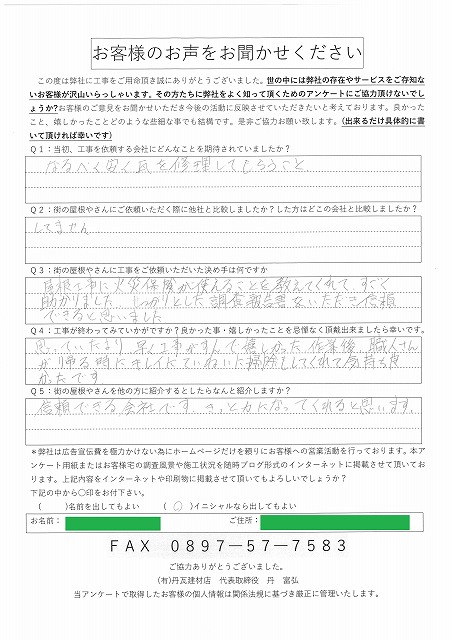 お客様のお声をお聞かせください
この度は弊社に工事をご用命頂き誠にありがとうございました。世の中には弊社の存在やサービスをご存知な
いお客様が沢山いらっしゃいます。その方たちに弊社をよく知って頂くためのアンケートにご協力頂けないでし
ょうか?お客様のご意見をお聞かせいただき今後の活動に反映させていただきたいと考えております。良かった
こと、嬉しかったことどのような些細な事でも結構です。是非ご協力お願い致します。(出来るだけ具体的に書
いて頂ければ幸いです)
Q1:当初、工事を依頼する会社にどんなことを期待されていましたか?
なるべく安く瓦を修理してもらうこと
Q2:街の屋根やさんにご依頼いただく際に他社と比較しましたか?した方はどこの会社と比較しましたか?
してません
Q3:街の屋根やさんに工事をご依頼いただいた決め手は何ですか
屋根工事に火災保険が使えることを教えてくれて、すごく
助かりました しっかりとした調査報告書をいただき信頼
できると思いました
Q4:工事が終わってみていかがですか?良かった事・嬉しかったことを忌憚なく頂戴出来ましたら幸いです。
思っていたより早く工事がすんで嬉しかった 作業後、職人さん
が帰る時にキレイにていねいに掃除をしてくれて気持ち良
かったです
Q5:街の屋根やさんを他の方に紹介するとしたらなんと紹介しますか?
信頼できる会社です。きっと力になってくれると思います。
*弊社は広告宣伝費を極力かけない為にホームページだけを頼りにお客様への営業活動を行っております。本ア
ンケート用紙またはお客様宅の調査風景や施工状況を随時ブログ形式のインターネットに掲載させて頂いてお
ります。上記内容をインターネットや印刷物に掲載させて頂いてもよろしいでしょうか?
下記の中から〇印をお付下さい。
( )名前を出してもよい ( ○ )イニシャルなら出してもよい
お名前: ご住所:
FAX 0897-57-7583
ご協力ありがとうございました。
(有)丹瓦建材店 代表取締役 丹 富弘
当アンケートで取得したお客様の個人情報は関係法規に基づき厳正に管理いたします。